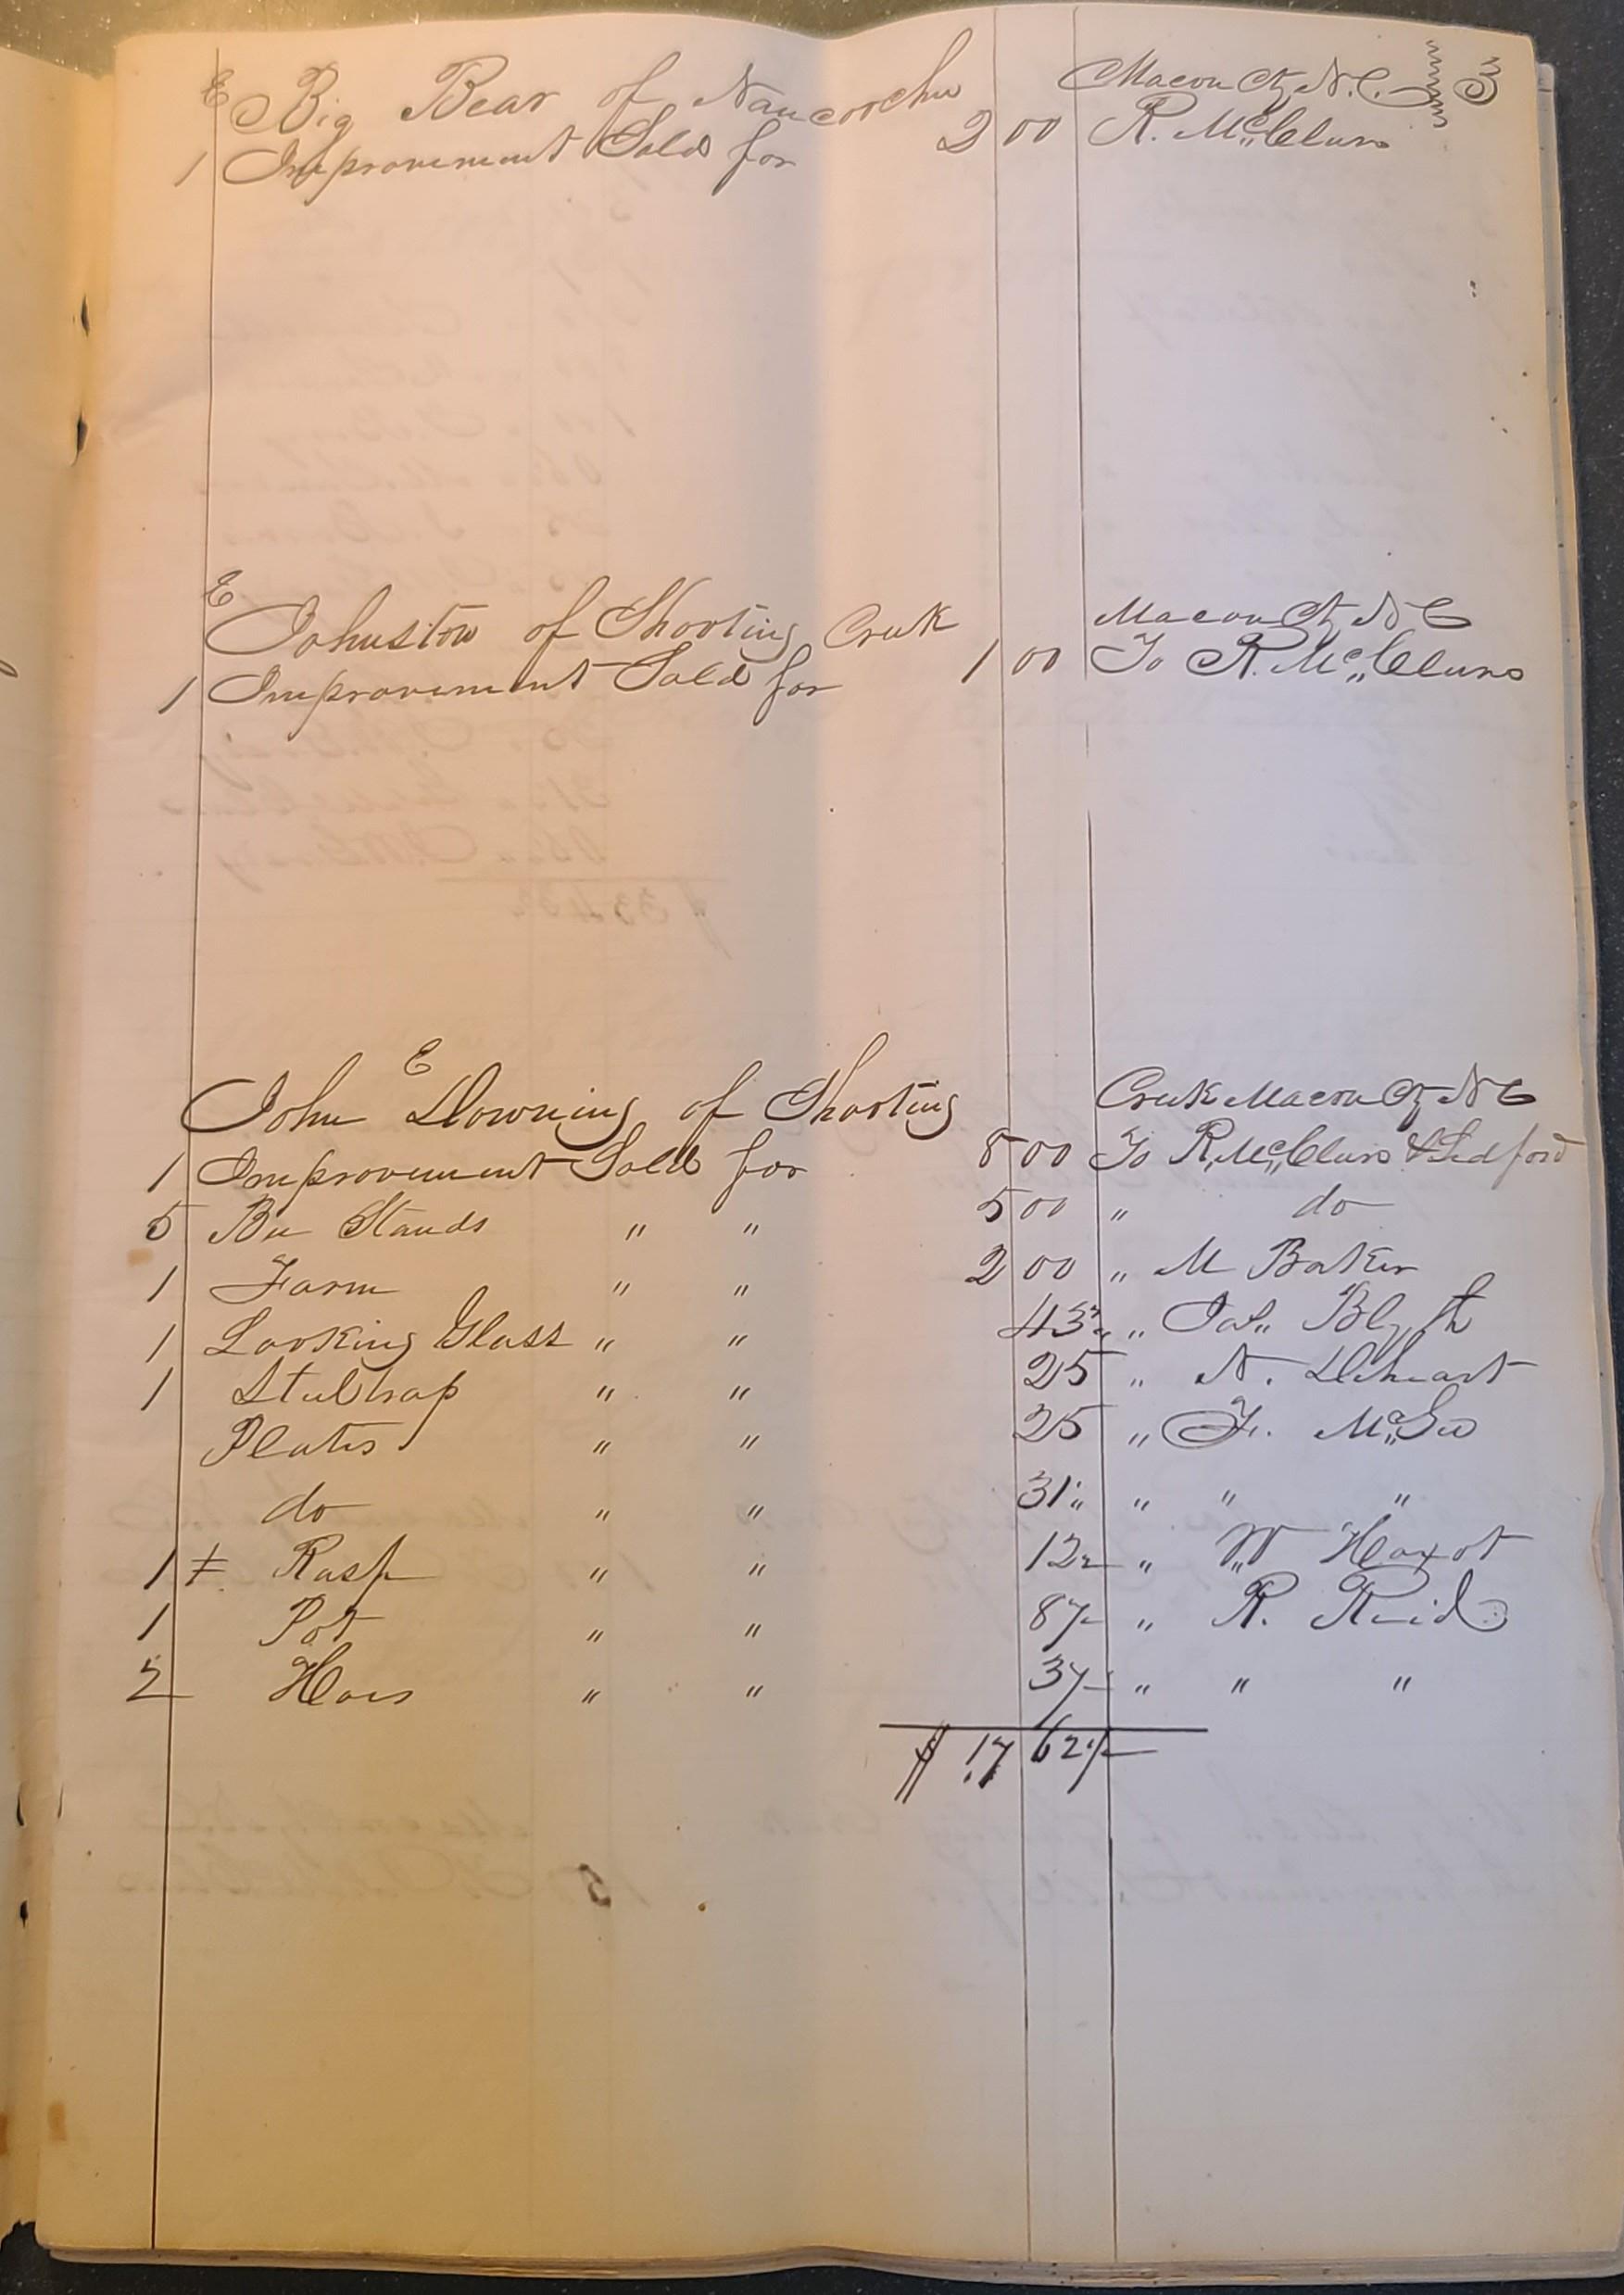 E Big Bear of Nancoochee Macon Cty N.C. 3
1 Improvement Sold for 2 00 R. Mc,,Clure
E
Johnston of Shooting Creek Macon Cty N C
1 Improvement Sold for 1 00 To R. Mc,,Clure
E
John Downing of Shooting Creek Macon Cty N C
1 Improvement Sold for 8 00 To R, Mc,,Clure & Ledford
5 Bee Stands " " 5 00 " do
1 Farm " " 2 00 " M Baker
1 Looking Glass " " 43 " Jas,, Blyth
1 Steeltrap " " 25 " N. Deheart
Plates " " 25 " F. Mc,,Gee
do " " 31 " " "
1 Rasp " " 12 " W
1 Pot " " 87 " R. Reid
2 Hoes " " 37 " " "
$ 17 62